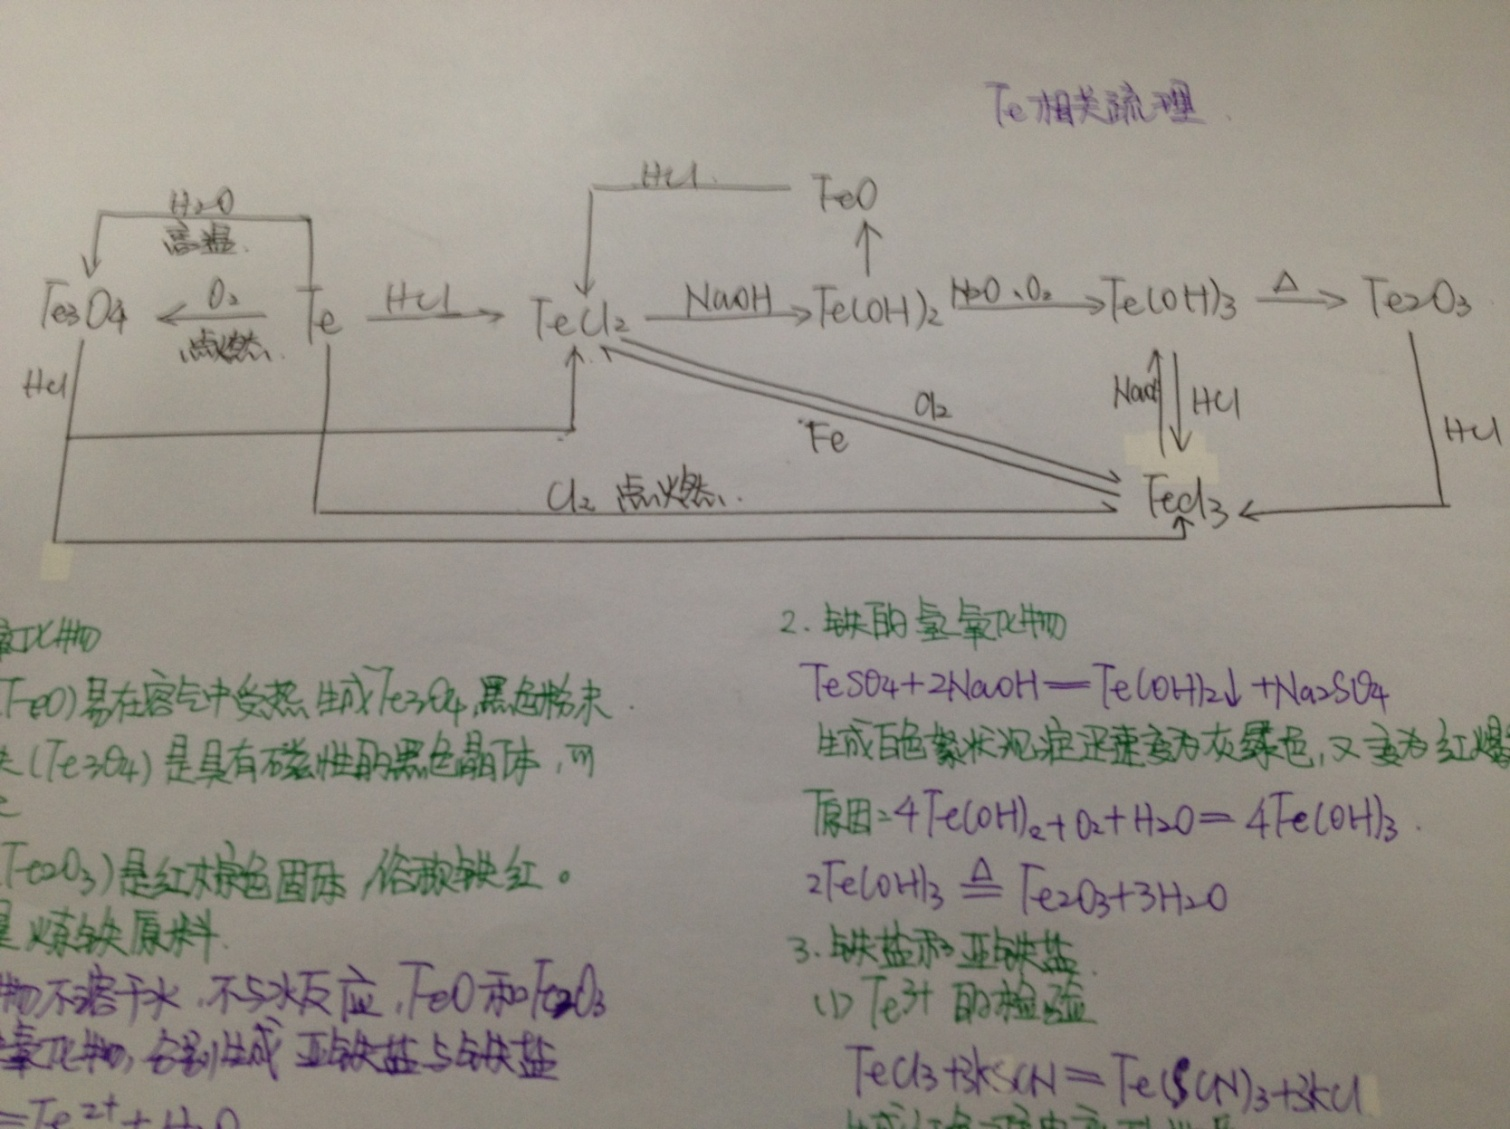 Fe相关梳理
HCl
FeO
H2O
高温
Fe3O4
O2
点燃
Fe
HCl
FeCl2
NaOH
Fe(OH)2
H2O、O2
Fe(OH)3
△
Fe2O3
HCl
Cl2
Fe
NaOH
HCl
HCl
Cl2 点燃
FeCl3
氧化物
(FeO)易在空气中受热生成Fe3O4,黑色粉末.
(Fe3O4)是具有磁性的黑色晶体,可
(Fe2O3)是红棕色固体,俗称铁红。
是炼铁原料.
物不溶于水.不与水反应,FeO和Fe2O3
氧化物,分别生成 亚铁盐与铁盐
=Fe2++H2O
2.铁的氢氧化物
FeSO4+2NaOH=Fe(OH)2↓+Na2SO4
生成白色絮状沉淀迅速变为灰绿色,又变为红褐
原因:4Fe(OH)2+O2+H2O=4Fe(OH)3.
2Fe(OH)3 △= Fe2O3+3H2O
3.铁盐和亚铁盐.
(1) Fe3+ 的检验
FeCl3+3KSCN=Fe(SCN)3+3KCl